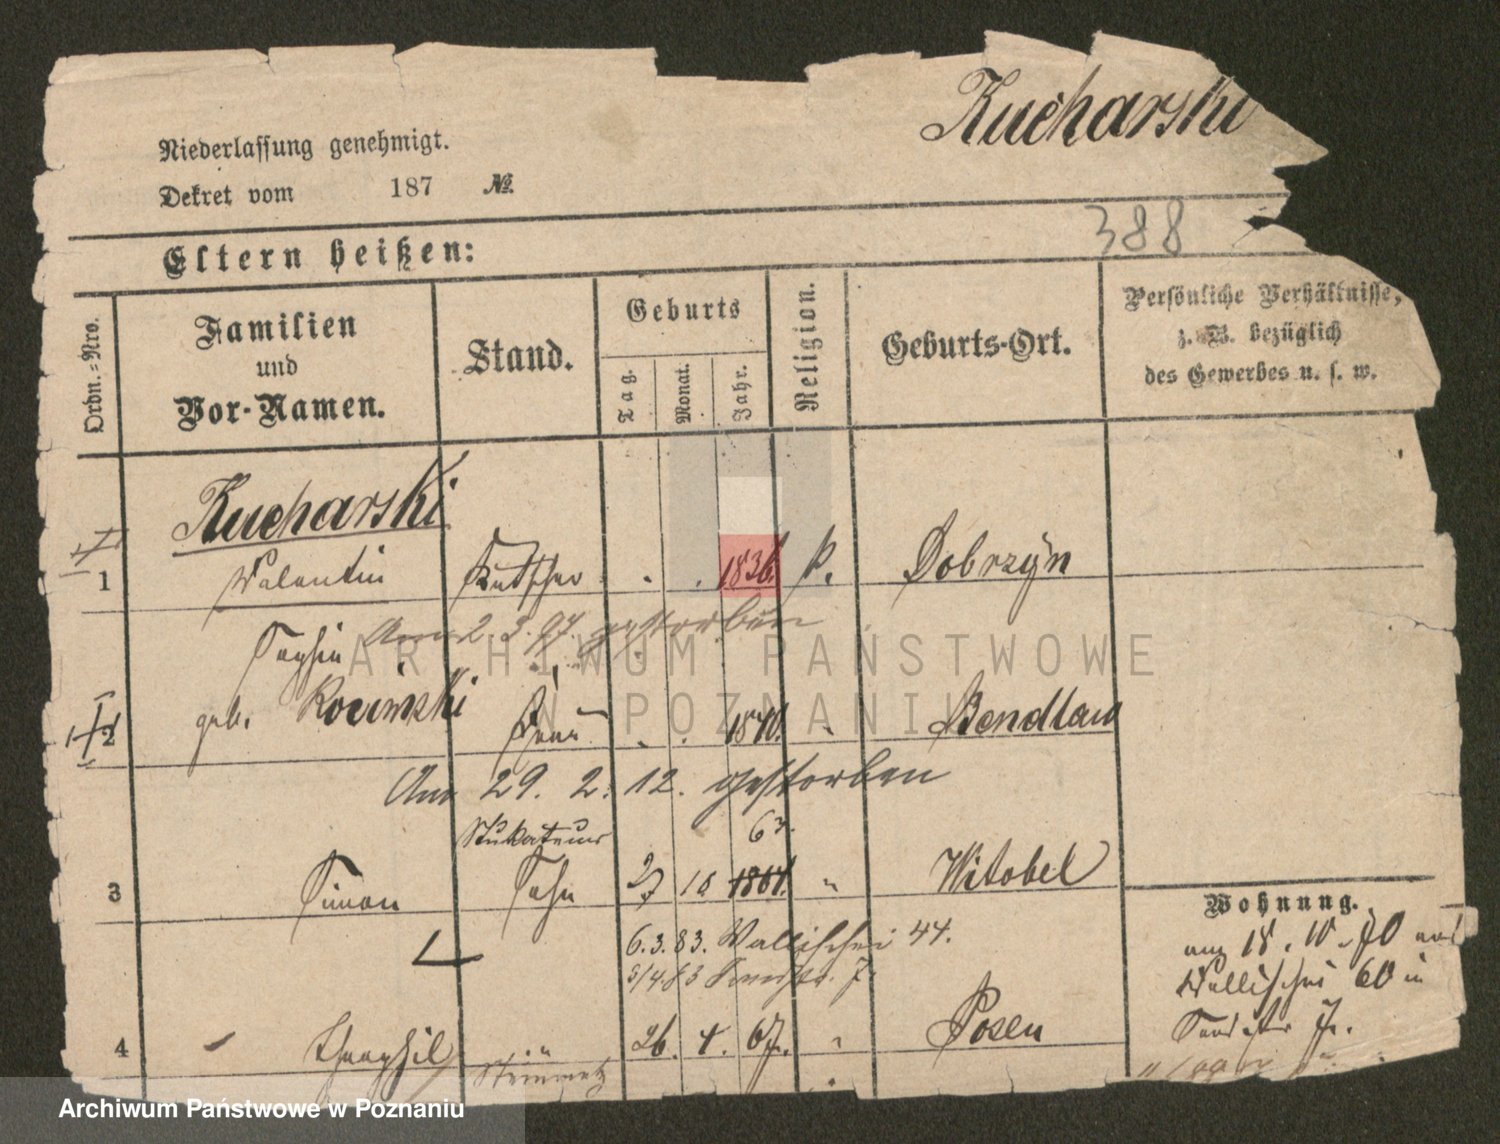 Kucharski
Niederlassung genehmigt.
Dekret vom 187 №.
388
Eltern heißen:
Ordn.=Nro.
Familien
und
Vor-Namen.
Stand.
Geburts
Tag.
Monat.
Jahr.
Religion.
Geburts-Ort.
Persönliche Verhältnisse,
z. B. bezüglich
des Gewerbes u. s. w.
Kucharski
1 Valentin Kutscher . . 1836. k. Dobrzyn
Am 2. 3. 07. gestorben
Sophie
geb.
2 Frau . . 1840. " Bendlau
Am 29. 2. 12. gestorben
Stukateur 67.
3 Simon Sohn 27 10 1864. " Witobel
6. 3. 83. Wallischei 44.
Wohnung.
18. 10. 70
Wallischei 60 in
7.
4 Theophil " 26. 4. 67. " Posen
Steinmetz
ARCHIWUM PAŃSTWOWE
W POZNANIU
Archiwum Państwowe w Poznaniu